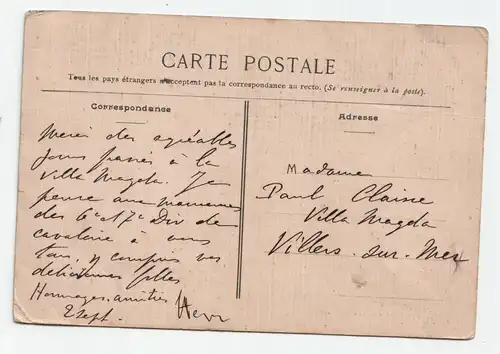 CARTE POSTALE
Tous les pays étrangers n'acceptent pas la correspondance au recto. (Se renseigner à la poste).
Correspondance
Adresse
Merci des agréables
jours passés à la
Villa Magda. Je
pense aux manœuvres
des 6e et 7e Div de
cavalerie à vous
tous, y compris vos
délicieuses filles
Hommages, amitiés
2 Sept.
Madame
Paul Claine
Villa Magda
Villers-sur-Mer